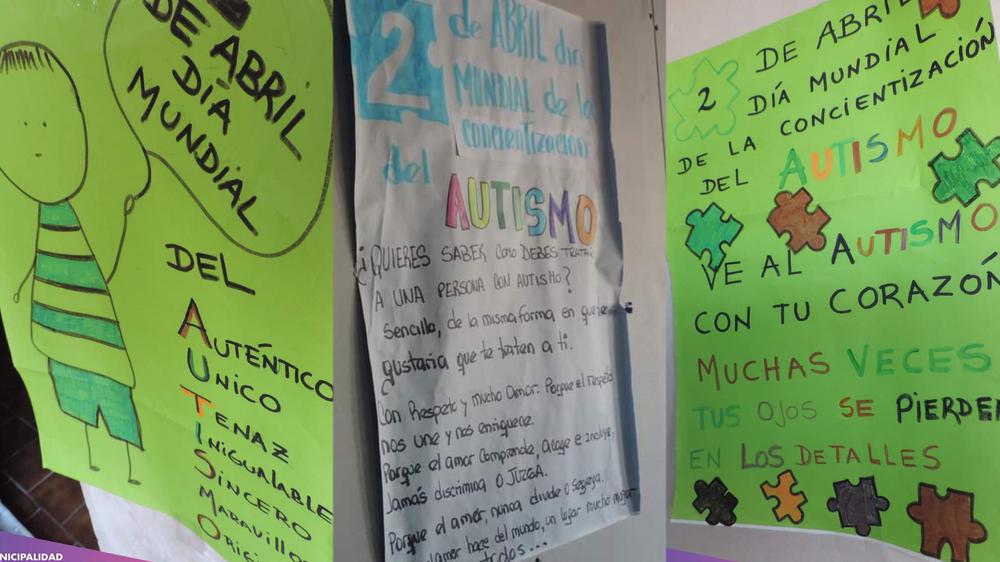 DE ABRIL
DÍA
MUNDIAL
DEL
AUTÉNTICO
UNICO
TENAZ
INIGUALABLE
SINCERO
MARAVILLO
ORIG
NICIPALIDAD
2
de ABRIL dia
MUNDIAL de la
concientización
del
AUTISMO
¿QUIERES SABER COMO DEBES TRATAR
A UNA PERSONA CON AUTISMO?
Sencillo, de la misma forma en que te
gustaria que te traten a ti.
Con Respeto y mucho Amor. Porque el respeto
nos une y nos enriquece.
Porque el amor Comprende, Acoge e Incluye,
Jamás discrimina o JUZGA.
Porque el amor, nunca divide o segrega.
amor hace del mundo, un lugar mucho mejor
todos...
2
DE ABRIL
DÍA MUNDIAL
DE LA CONCIENTIZACIÓN
DEL AUTISMO
VE AL AUTISMO
CON TU CORAZÓN
MUCHAS VECES
TUS OJOS SE PIERDEN
EN LOS DETALLES